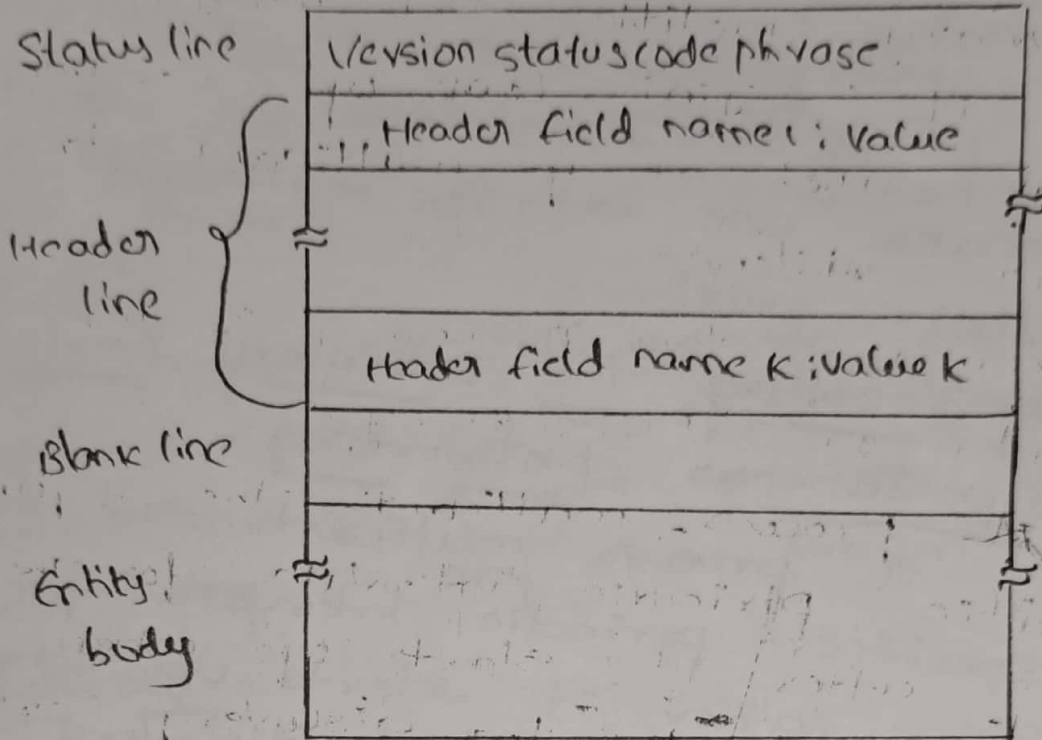 Status line
Version status code phrase
Header field name 1 : value
Header
line
Header field name K : value K
Blank line
Entity
body